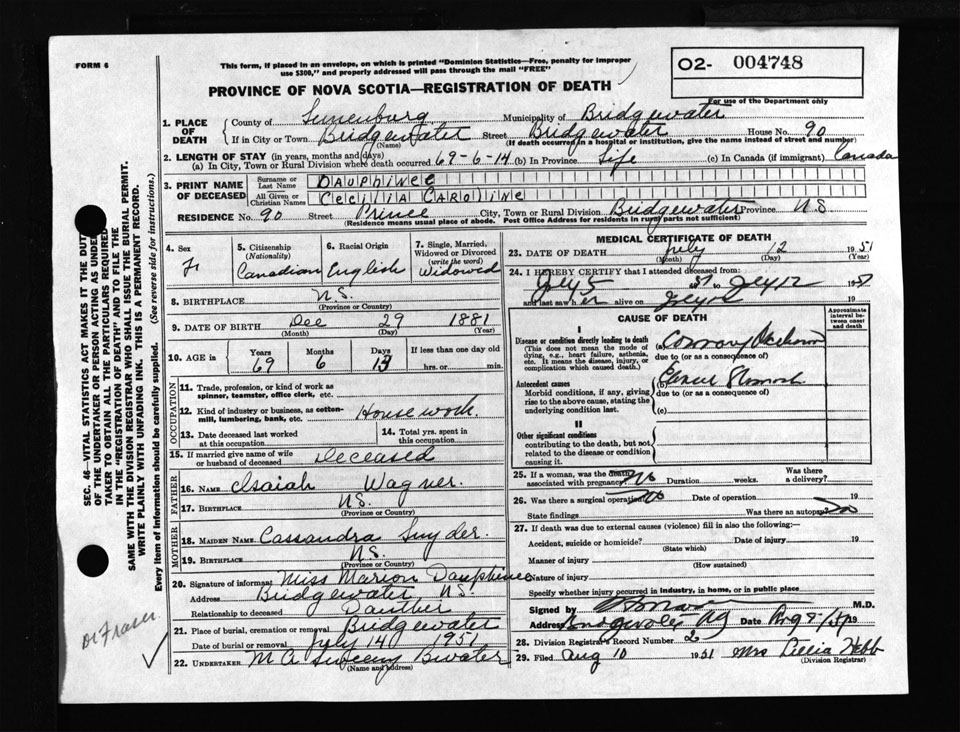 FORM 6
This form, if placed in an envelope, on which is printed "Dominion Statistics—Free, penalty for improper
use $300," and properly addressed will pass through the mail "FREE"
O2- 004748
For use of the Department only
PROVINCE OF NOVA SCOTIA—REGISTRATION OF DEATH
1. PLACE OF DEATH
County of Lunenburg Municipality of Bridgewater
If in City or Town Bridgewater Street Bridgewater House No. 90
(Name) (If death occurred in a hospital or institution, give the name instead of street and number)
2. LENGTH OF STAY (in years, months and days)
(a) In City, Town or Rural Division where death occurred 69-6-14 (b) In Province Life (c) In Canada (if immigrant) Canada
3. PRINT NAME OF DECEASED
Surname or Last Name DAUPHINEE
All Given or Christian Names CECILIA CAROLINE
RESIDENCE No. 90 Street Prince City, Town or Rural Division Bridgewater Province N.S.
(Residence means usual place of abode. Post Office Address for residents in rural parts not sufficient)
4. Sex F
5. Citizenship (Nationality) Canadian
6. Racial Origin English
7. Single, Married, Widowed or Divorced (write the word) Widowed
8. BIRTHPLACE N.S.
(Province or Country)
9. DATE OF BIRTH Dec 29 1881
(Month) (Day) (Year)
10. AGE in Years 69 Months 6 Days 13 If less than one day old hrs. or min.
OCCUPATION
11. Trade, profession, or kind of work as spinner, teamster, office clerk, etc.
12. Kind of industry or business, as cotton-mill, lumbering, bank, etc. Housework.
13. Date deceased last worked at this occupation
14. Total yrs. spent in this occupation
15. If married give name of wife or husband of deceased Deceased
FATHER
16. Name Isaiah Wagner.
17. Birthplace N.S.
(Province or Country)
MOTHER
18. Maiden Name Cassandra Snyder.
19. Birthplace N.S.
(Province or Country)
20. Signature of informant Miss Marion Dauphinee
Address Bridgewater N.S.
Relationship to deceased Dauther
21. Place of burial, cremation or removal Bridgewater
Date of burial or removal July 14 1951
22. UNDERTAKER M A Sweeny Bwater
(Name and address)
MEDICAL CERTIFICATE OF DEATH
23. DATE OF DEATH July 12 1951
(Month) (Day) (Year)
24. I HEREBY CERTIFY that I attended deceased from:
July 5 51 to July 12 1951
and last saw her alive on July 19
CAUSE OF DEATH
Approximate interval between onset and death
I
Disease or condition directly leading to death
(This does not mean the mode of dying, e.g., heart failure, asthenia, etc. It means the disease, injury, or complication which caused death.)
due to (or as a consequence of)
Antecedent causes
Morbid conditions, if any, giving rise to the above cause, stating the underlying condition last.
(b)
due to (or as a consequence of)
(c)
II
Other significant conditions
contributing to the death, but not related to the disease or condition causing it.
25. If a woman, was the death associated with pregnancy No Duration weeks. Was there a delivery?
26. Was there a surgical operation No Date of operation 19
State findings Was there an autopsy No
27. If death was due to external causes (violence) fill in also the following:—
Accident, suicide or homicide? Date of injury 19
(State which)
Manner of injury
(How sustained)
Nature of injury
Specify whether injury occurred in industry, in home, or in public place
Signed by M.D.
Address Date Aug 9
28. Division Registrar's Record Number 2
29. Filed Aug 10 1951 Mrs Lillia Hebb
(Division Registrar)
SEC. 46—VITAL STATISTICS ACT MAKES IT THE DUTY
OF THE UNDERTAKER OR PERSON ACTING AS UNDER-
TAKER TO OBTAIN ALL THE PARTICULARS REQUIRED
IN THE "REGISTRATION OF DEATH" AND TO FILE THE
SAME WITH THE DIVISION REGISTRAR WHO SHALL ISSUE THE BURIAL PERMIT.
WRITE PLAINLY WITH UNFADING INK. THIS IS A PERMANENT RECORD.
Every item of information should be carefully supplied. (See reverse side for instructions.)
Dr Fraser